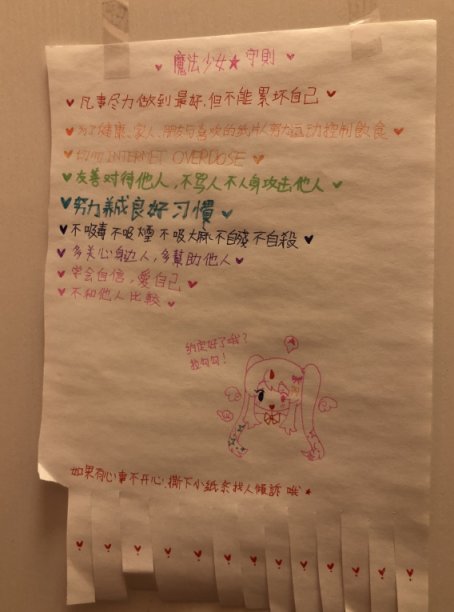 魔法少女★守則
♥ 凡事尽力做到最好,但不能累坏自己 ♥
♥ 为了健康、家人、朋友与喜欢的纸片人努力运动控制飲食 ♥
♥ 切勿INTERNET OVERDOSE ♥
♥ 友善对待他人,不骂人不人身攻击他人 ♥
♥ 努力养成良好习慣 ♥
♥ 不吸毒不吸煙不吸大麻不自殘不自殺 ♥
♥ 多关心身边人,多幫助他人 ♥
♥ 学会自信,愛自己 ♥
♥ 不和他人比較 ♥
約定好了哦?
拉勾勾!
如果有心事不开心,撕下小紙条找人傾訴哦★